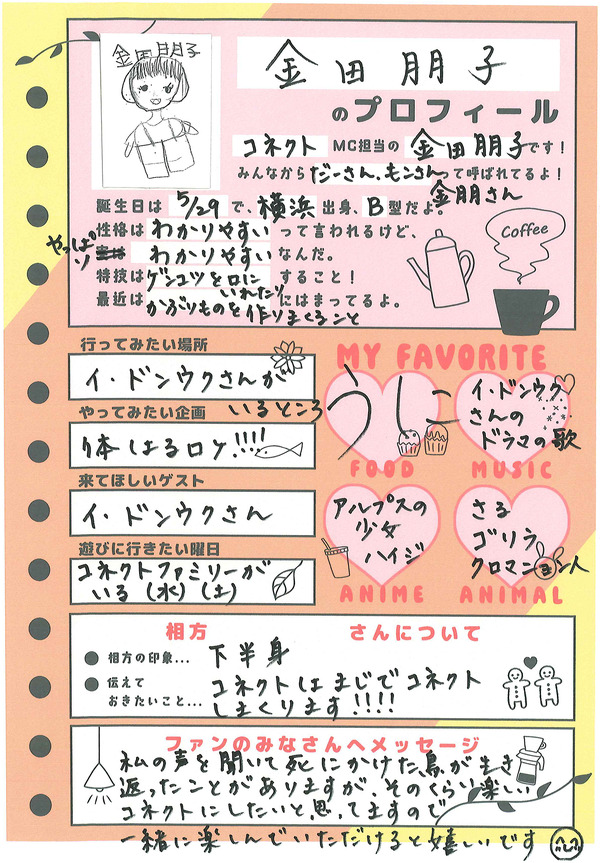 金田朋子
金田朋子
のプロフィール
コネクト MC担当の 金田朋子 です!
みんなから だーさん、もンさん って呼ばれてるよ!
金朋さん
誕生日は 5/29 で、横浜 出身、B 型だよ。
性格は わかりやすい って言われるけど、
やっぱり わかりやすい なんだ。
特技は ゲンコツを口に すること!
いれたり
最近は かぶりものを作りまくること にはまってるよ。
Coffee
行ってみたい場所
イ・ドンウクさんが
いるところ
やってみたい企画
体はるロケ!!!!
来てほしいゲスト
イ・ドンウクさん
遊びに行きたい曜日
コネクトファミリーが
いる(水)(土)
MY FAVORITE
うに
FOOD
イ・ドンウク
さんの
ドラマの歌
MUSIC
アルプスの
少女
ハイジ
ANIME
さる
ゴリラ
クロマニョン人
ANIMAL
相方 さんについて
● 相方の印象... 下半身
● 伝えて
おきたいこと... コネクトはまじでコネクト
しまくります!!!!
ファンのみなさんへメッセージ
私の声を聞いて死にかけた鳥が生き
返ったことがありますが、そのくらい楽しい
コネクトにしたいと思ってますので
一緒に楽しんでいただけると嬉しいです